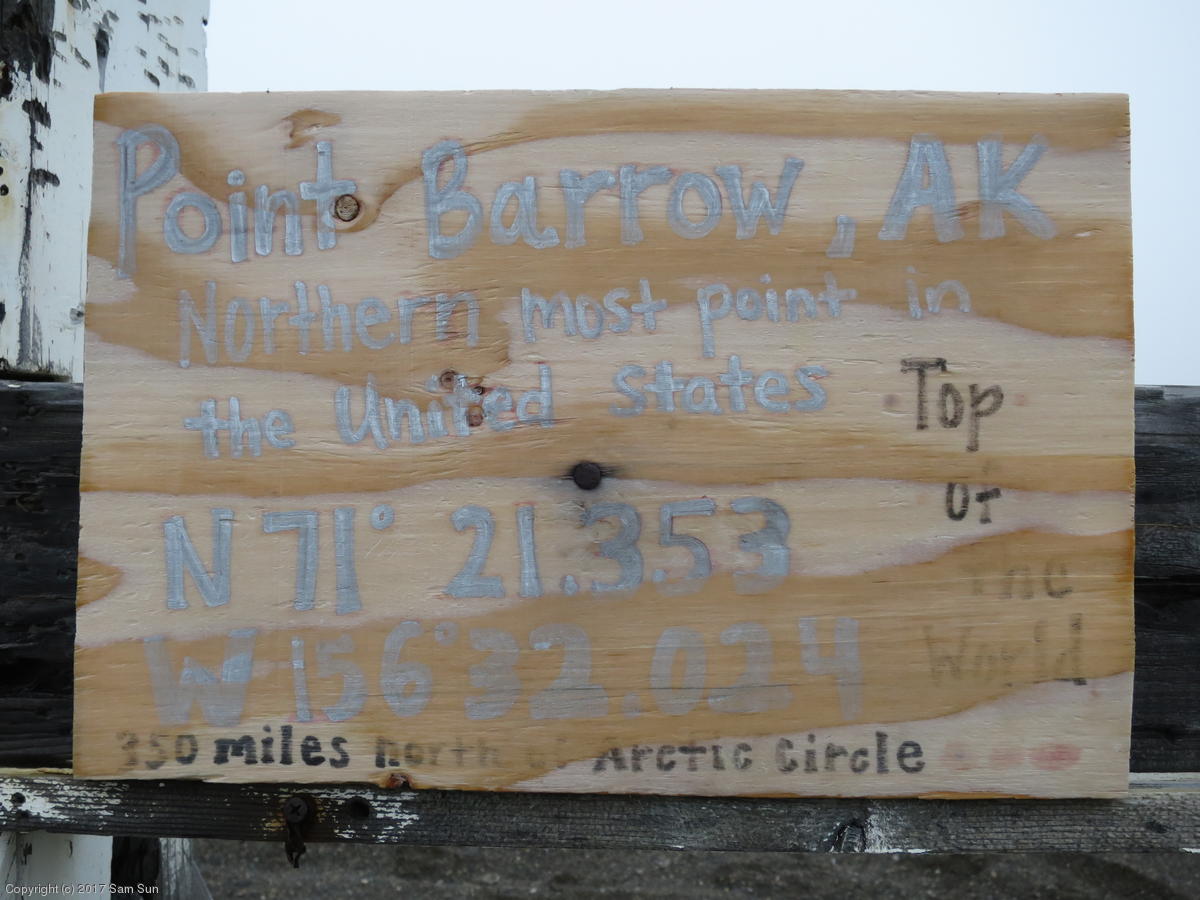 Point Barrow, AK
Northern most point in
the United States
N 71° 21.353
W 156° 32.024
350 miles north of Arctic Circle
Top
of
the
World
Copyright (c) 2017 Sam Sun